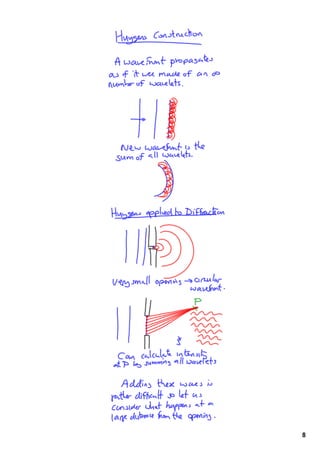 Huygens Construction
A wavefront propagates
as if it were made of an ∞
number of wavelets.
New wavefront is the
sum of all wavelets.
Huygens applied to Diffraction
Very small opening → circular
wavefront.
P
Can calculate intensity
at P by summing all wavelets
Adding these waves is
rather difficult so let us
consider what happens at a
large distance from the opening.
8